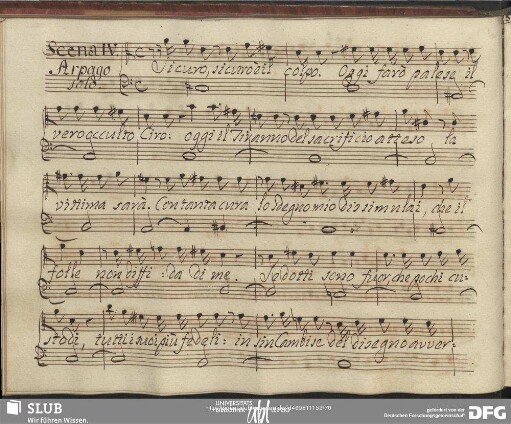 Scena IV.
Arpago
solo
Sicuro, sicuro è il colpo. Oggi farò palese il
vero occulto Ciro: oggi il Tiranno del sacrificio atteso la
vittima sarà. Con tanta cura lo sdegno mio dissimulai, che il
folle non diffi: da di me. Sedotti sono fuor che pochi cu:
stodi, tutti i suoi più fedeli: in sin Cambise del disegno avver:
SLUB
Wir führen Wissen.
gefördert von der
Deutschen Forschungsgemeinschaft
DFG